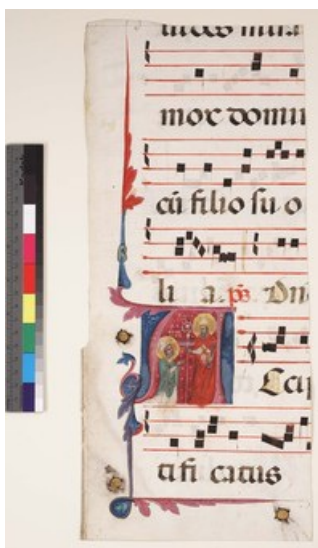 mor domi
cū filio su o
li a. ps. Dn̄
tifi catus